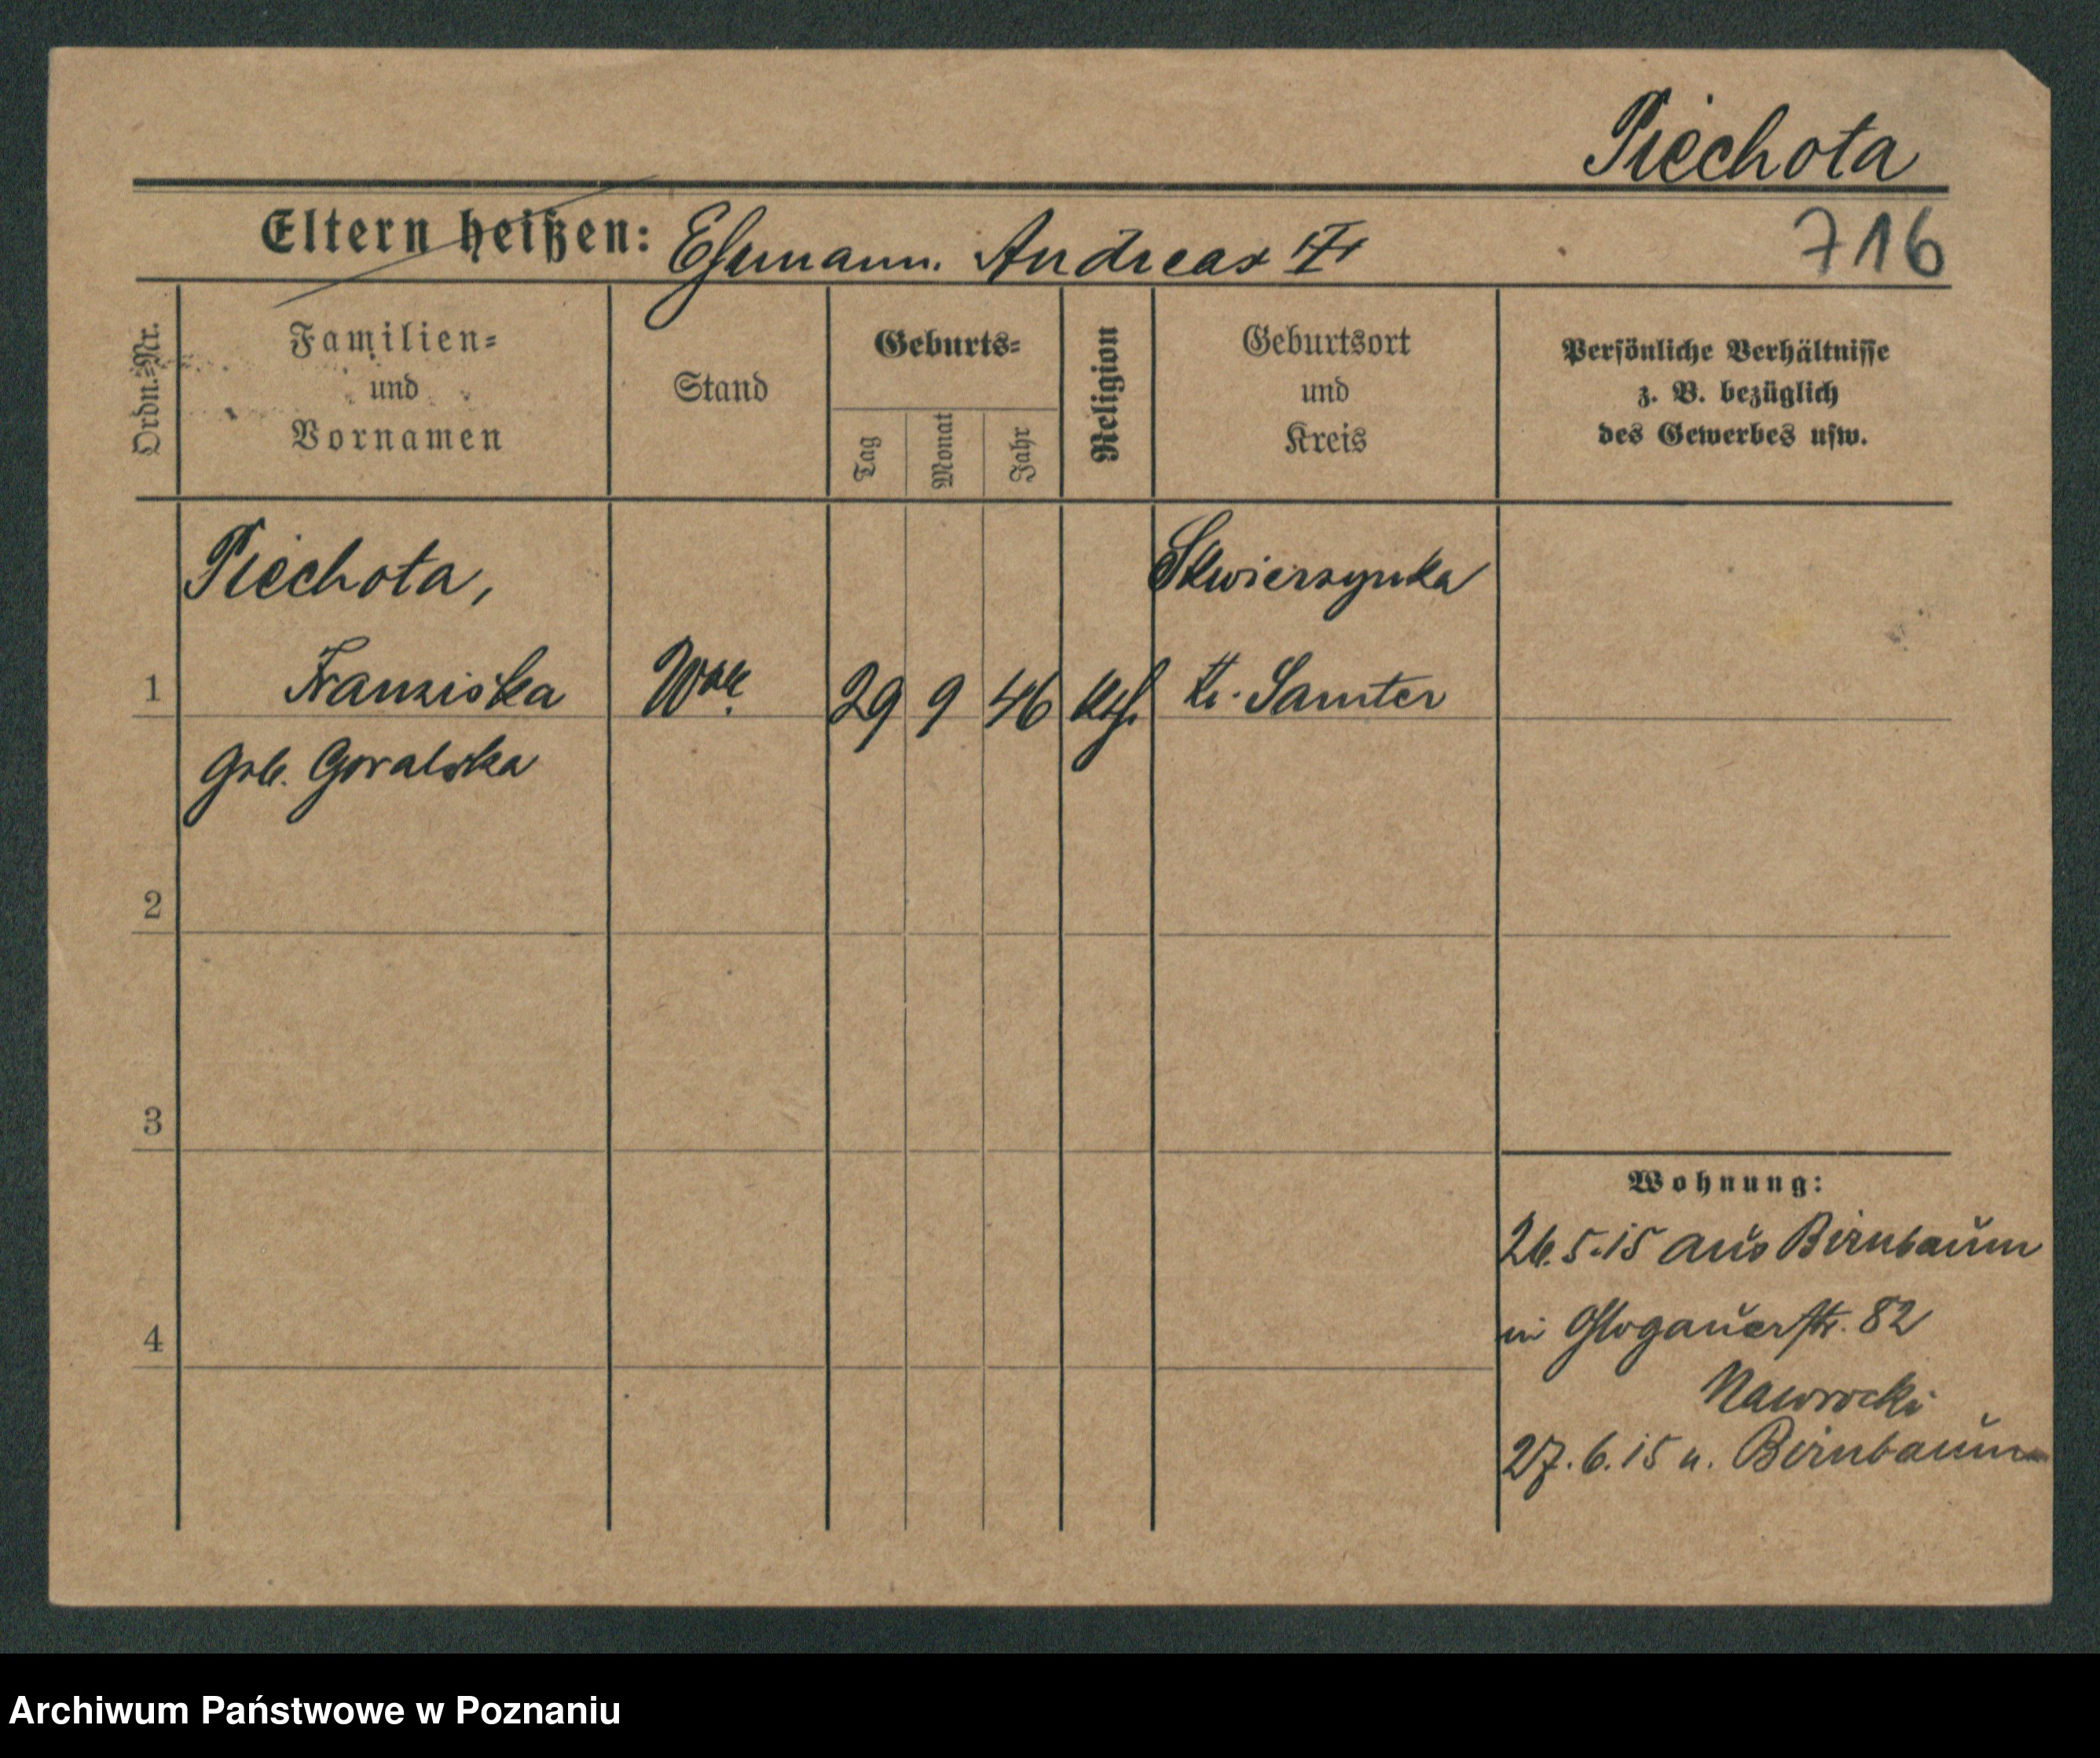 Piechota
Eltern heißen: Ehemann. Andreas
716
Ordn.-Nr.
Familien-
und
Vornamen
Stand
Geburts-
Tag
Monat
Jahr
Religion
Geburtsort
und
Kreis
Persönliche Verhältnisse
z. B. bezüglich
des Gewerbes usw.
Piechota,
Skwierzynka
1
Franziska
Wwe.
29
9
46
kth.
Kr. Samter
geb. Goralska
2
3
4
Wohnung:
26.5.15 aus Birnbaum
in Glogauerstr. 82
Nawrocki
27.6.15 n. Birnbaum
Archiwum Państwowe w Poznaniu